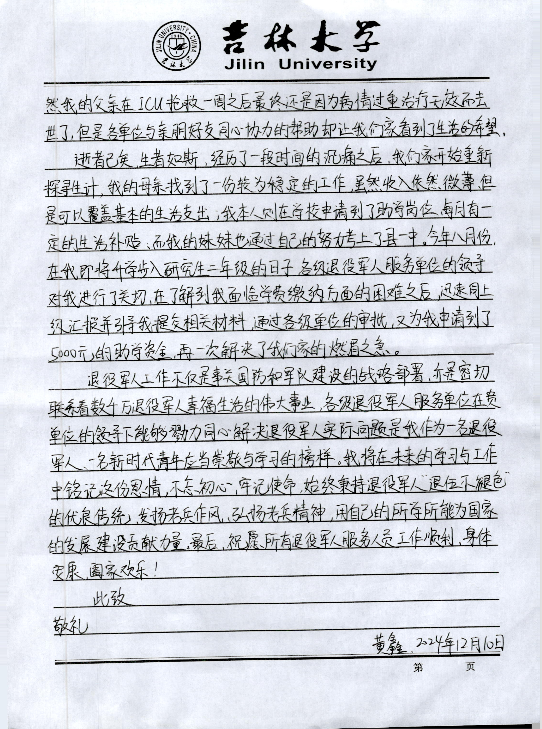 吉林大学
Jilin University
然我的父亲在ICU抢救一周之后最终还是因为病情过重治疗无效而去
世了,但是各单位与亲朋好友同心协力的帮助却让我们家看到了生活的希望。
逝者已矣,生者如斯,经历了一段时间的沉痛之后,我们家开始重新
探寻生计,我的母亲找到了一份较为稳定的工作,虽然收入依然微薄,但
是可以覆盖基本的生活支出;我本人则在学校申请到了助学岗位,每月有一
定的生活补贴、而我的妹妹也通过自己的努力考上了县一中。今年八月份,
在我即将升学步入研究生二年级的日子,各级退役军人服务单位的领导
对我进行了关切,在了解到我面临学费缴纳方面的困难之后,迅速向上
级汇报并引导我提交相关材料,通过各级单位的审批,又为我申请到了
5000元的助学资金,再一次解决了我们家的燃眉之急。
退役军人工作不仅是事关国防和军队建设的战略部署,亦是密切
联系着数千万退役军人幸福生活的伟大事业,各级退役军人服务单位在贵
单位的领导下能够勠力同心解决退役军人实际问题是我作为一名退役
军人、一名新时代青年应当崇敬与学习的榜样。我将在未来的学习与工作
中铭记这份恩情,不忘初心,牢记使命,始终秉持退役军人“退伍不褪色”
的优良传统,发扬老兵作风,弘扬老兵精神,用自己的所学所能为国家
的发展建设贡献力量。最后,祝愿所有退役军人服务人员工作顺利,身体
安康,阖家欢乐!
此致
敬礼
黄鑫 2024年12月10日
第 页